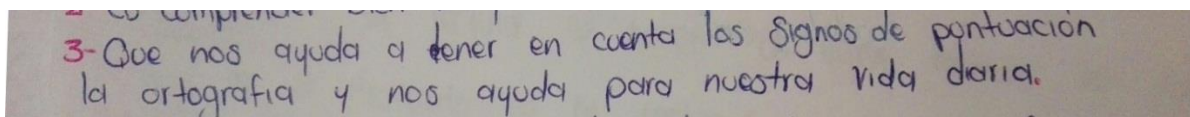 2- Es comprender
3- Que nos ayuda a tener en cuenta los signos de pontuación
la ortografia y nos ayuda para nuestra vida diaria.